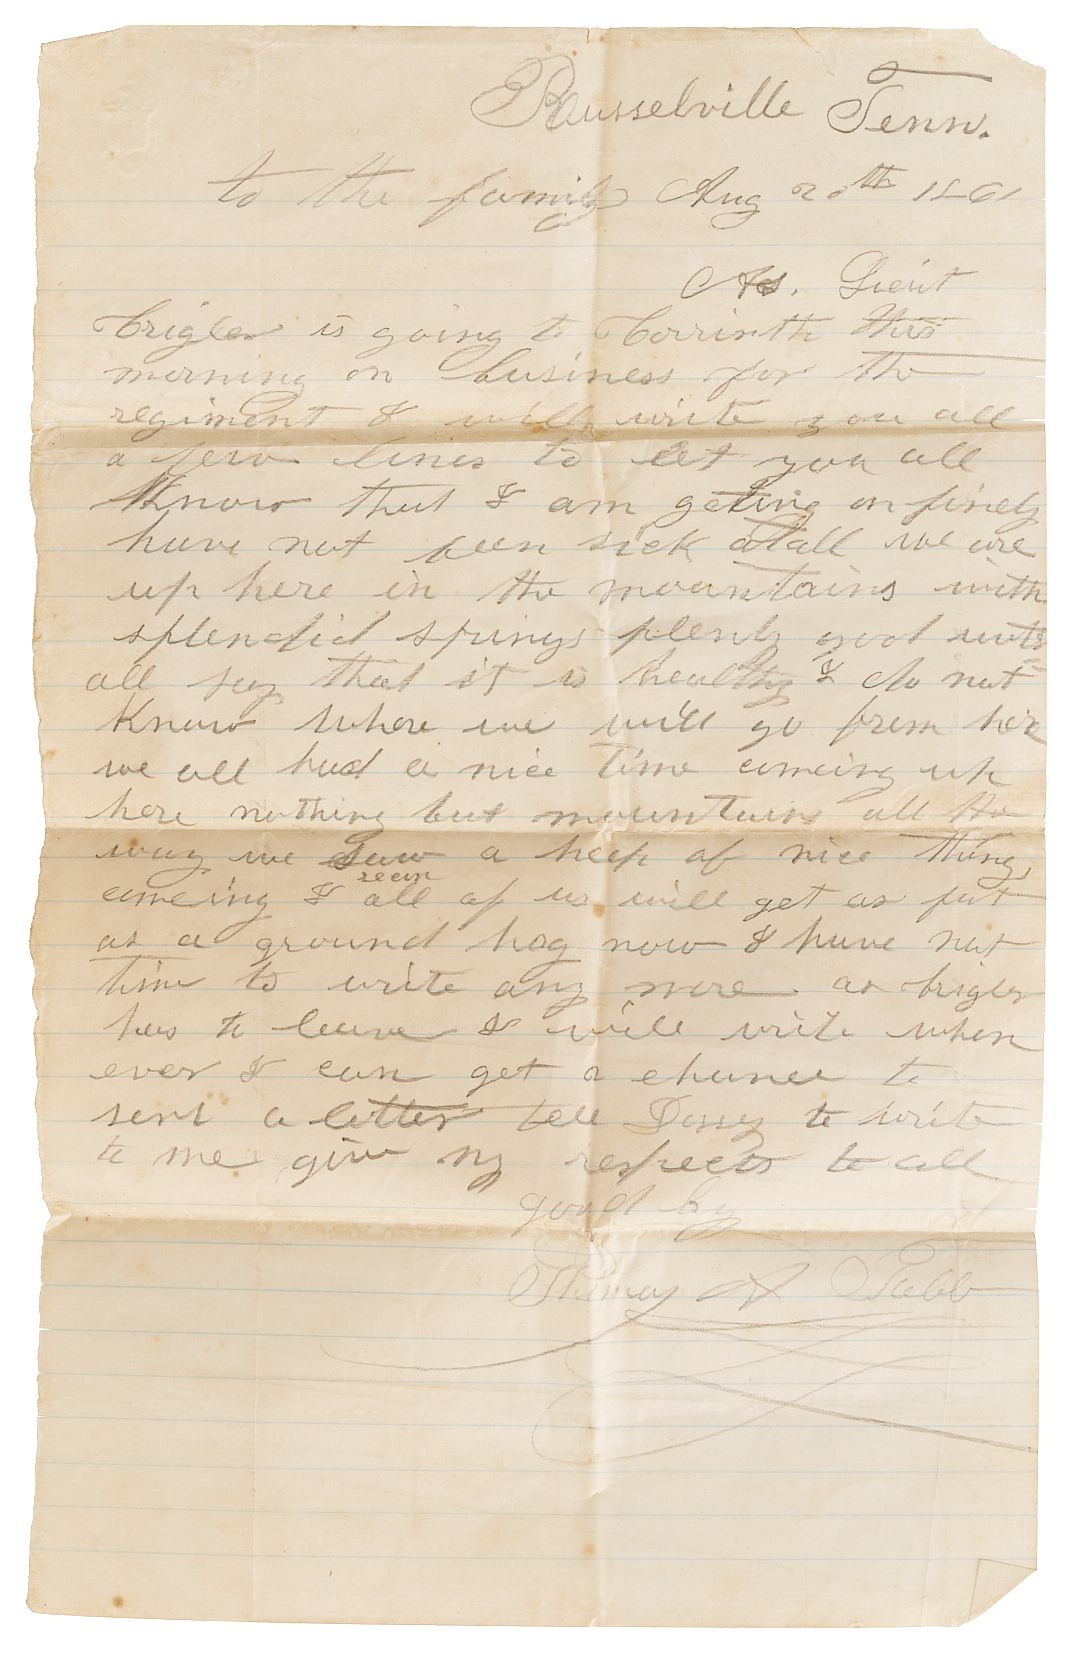 Rausselville Tenn.
to the family Aug 20th 1861
As. Lieut
Crigler is going to Corrinth this
morning on business for the
regiment I will write you all
a few lines to let you all
Know that I am geting on finely
have not been sick atall we are
up here in the mountains with
splendid springs plenty good
all say that it is healthy I do not
Know where we will go from here
we all had a nice time comeing up
here nothing but mountains all the
way we saw a heep of nice things
comeing I recon all of us will get as fat
as a ground hog now I have not
time to write any more as crigler
has to leave I will write when
ever I can get a chance to
send a letter tell Dossey to write
to me give my respects to all
good by
Thomas A Tabb